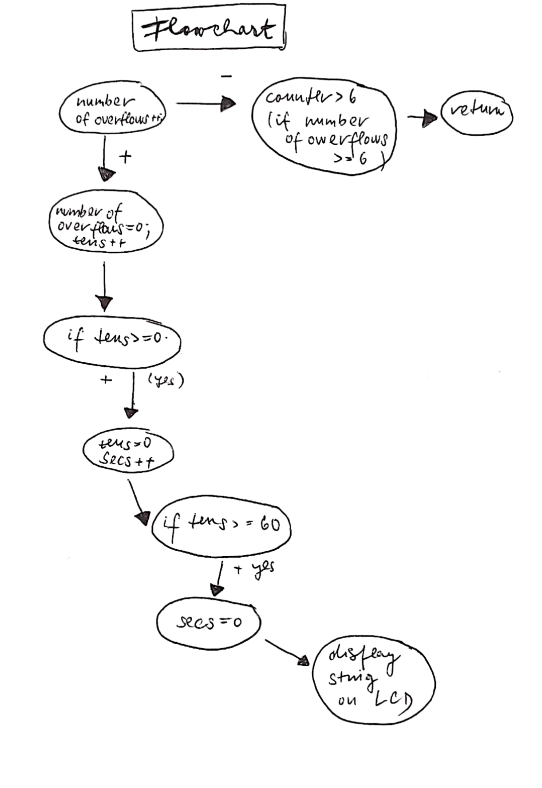 Flowchart
number
of overflows++;
-
counter>6
(if number
of owerflows
>=6 )
return
+
number of
overflows=0;
tens++
if tens>=0.
+ (yes)
tens=0
secs++
if tens>=60
+ yes
secs=0
display
string
on LCD